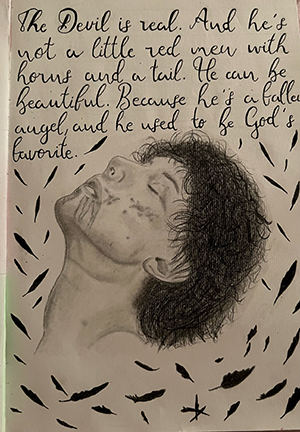 The Devil is real. And he's
not a little red men with
horns and a tail. He can be
beautiful. Because he's a fallen
angel, and he used to be God's
favorite.